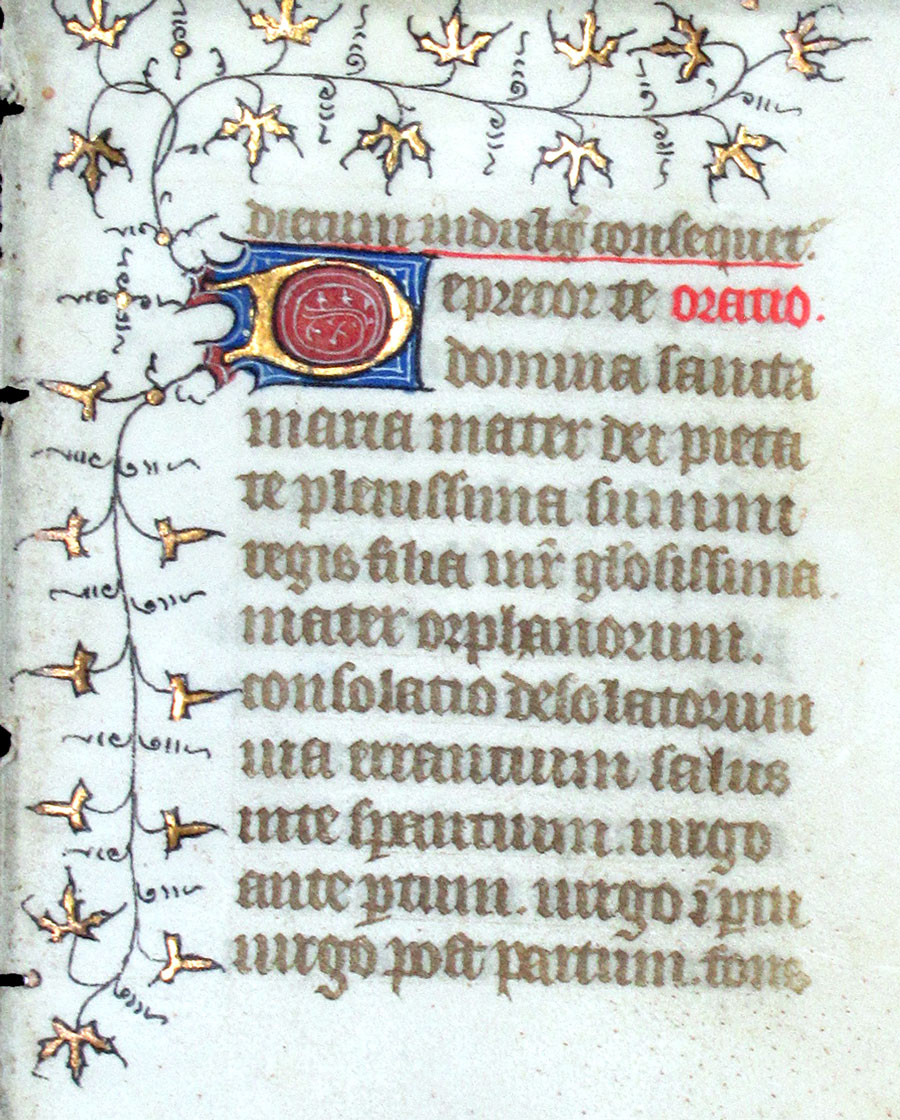 dierum indulg̅ consequet̅.
Deprecor te oratio.
domina sancta
maria mater dei pieta
te plenissima summi
regis filia mr̅ gl̅osissima
mater orphanorum.
consolatio desolatorum
uia errantium salus
inte sperantium. uirgo
ante p̲tum. uirgo ī p̲tu
uirgo post partum. fons